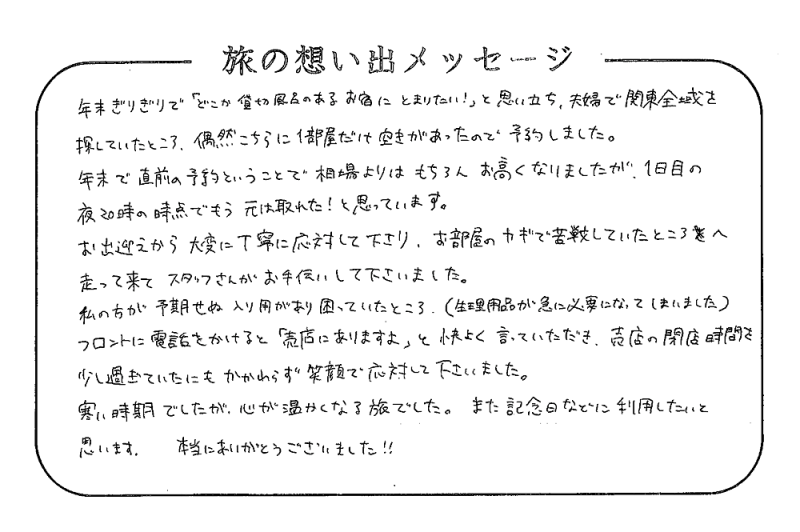 旅の想い出メッセージ
年末ぎりぎりで「どこか貸切風呂のあるお宿にとまりたい!」と思い立ち、夫婦で関東全域を
探していたところ、偶然こちらに1部屋だけ空きがあったので予約しました。
年末で直前の予約ということで相場よりはもちろんお高くなりましたが、1日目の
夜20時の時点でもう元は取れた!と思っています。
お出迎えから大変に丁寧に応対して下さり、お部屋のカギで苦戦していたところへ
走って来てスタッフさんがお手伝いして下さいました。
私の方が予期せぬ入り用があり困っていたところ、(生理用品が急に必要になってしまいました)
フロントに電話をかけると「売店にありますよ」と快よく言っていただき、売店の閉店時間を
少し過ぎていたにもかかわらず笑顔で応対して下さいました。
寒い時期でしたが、心が温かくなる旅でした。また記念日などに利用したいと
思います。 本当にありがとうございました!!